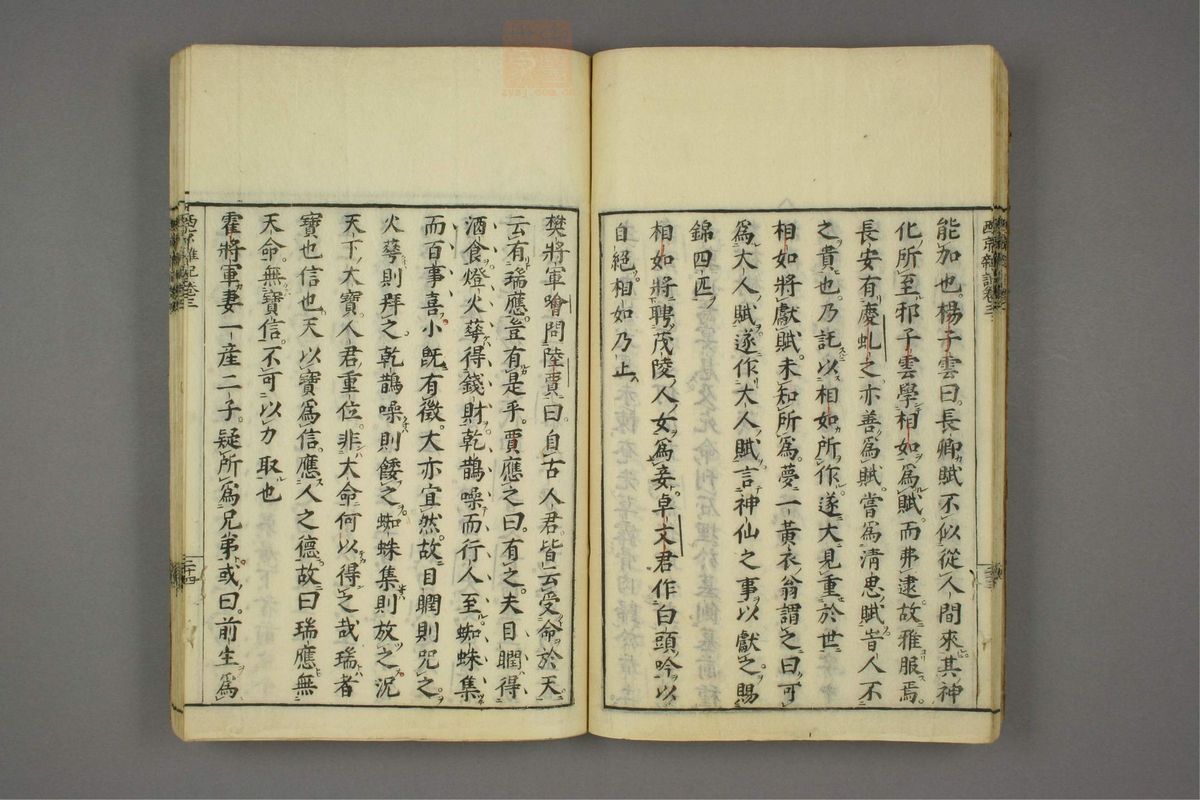 能加也楊子雲曰長卿賦不似從人間來其神
化所至邪子雲學相如爲賦而弗逮故雅服焉
長安有慶虬之亦善爲賦嘗爲清思賦時人不
之貴也乃託以相如所作遂大見重於世
相如將獻賦未知所爲夢一黃衣翁謂之曰可
爲大人賦遂作大人賦言神仙之事以獻之賜
錦四匹
相如將聘茂陵人女爲妾卓文君作白頭吟以
自絕相如乃止
樊將軍噲問陸賈曰自古人君皆云受命於天
云有瑞應豈有是乎賈應之曰有之夫目瞤得
酒食燈火蕐得錢財乾鵲噪而行人至蜘蛛集
而百事喜小既有徵大亦宜然故目瞤則咒之
火蕐則拜之乾鵲噪則餧之蜘蛛集則放之況
天下大寶人君重位非天命何以得之哉瑞者
寶也信也天以寶爲信應人之德故曰瑞應無
天命無寶信不可以力取也
霍將軍妻一產二子疑所爲兄弟或曰前生爲